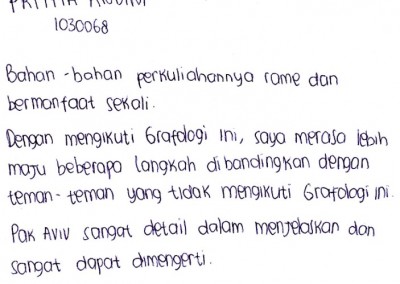 1030068
Bahan-bahan perkuliahannya rame dan
bermanfaat sekali.
Dengan mengikuti Grafologi ini, saya merasa lebih
maju beberapa langkah dibandingkan dengan
teman-teman yang tidak mengikuti Grafologi ini.
Pak Aviv sangat detail dalam menjelaskan dan
sangat dapat dimengerti.